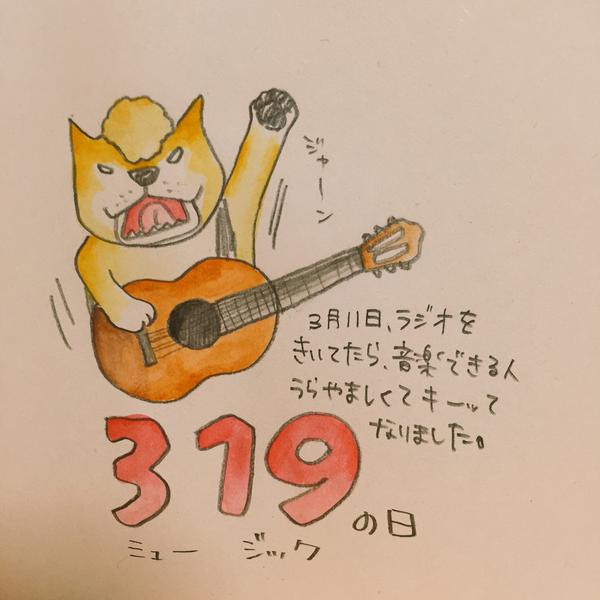 ジャーン
3月11日、ラジオを
きいてたら、音楽できる人
うらやましくてキーッて
なりました。
319の日
ミュージック